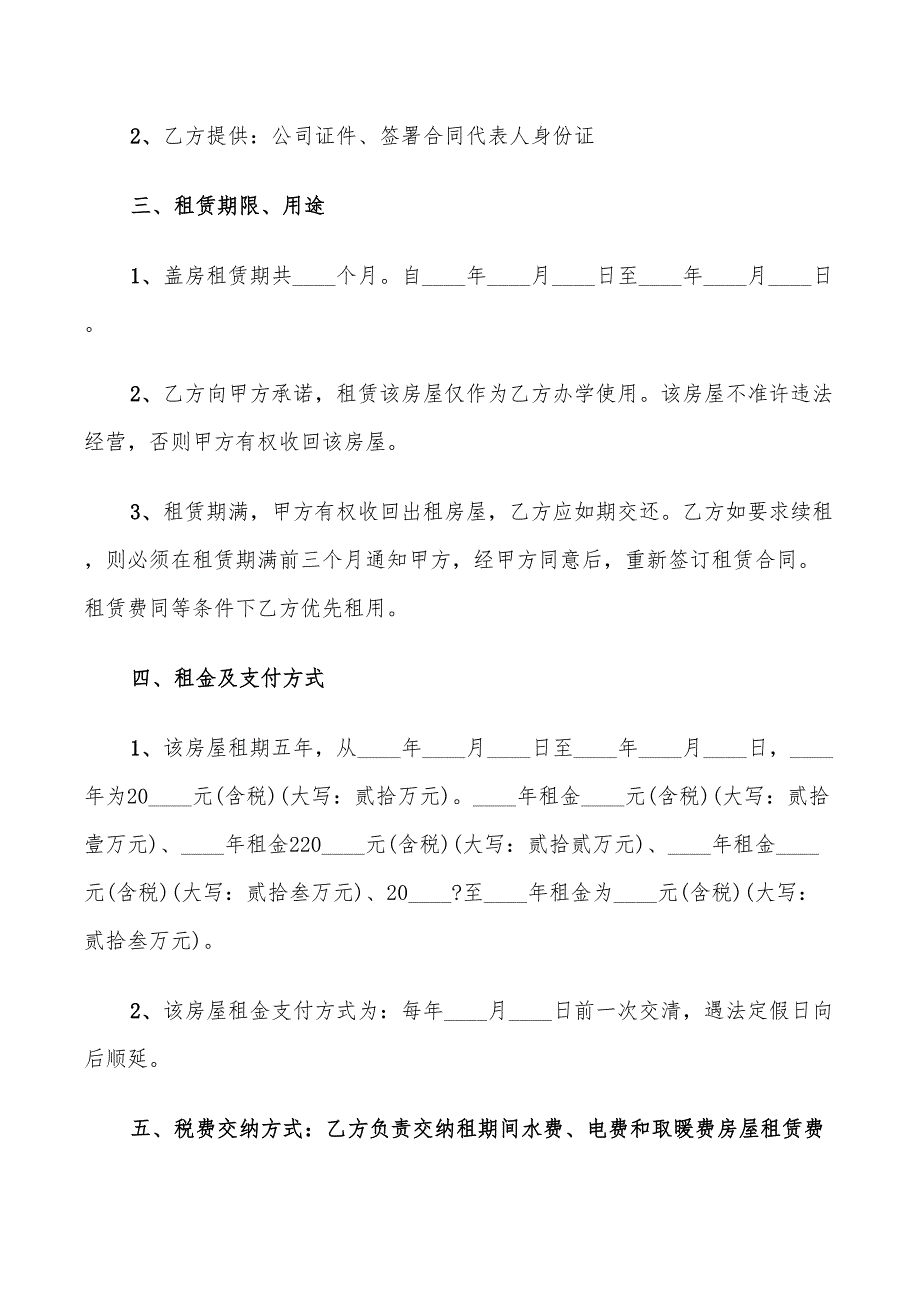 2、乙方提供：公司证件、签署合同代表人身份证
三、租赁期限、用途
1、盖房租赁期共____个月。自____年____月____日至____年____月____日
。
2、乙方向甲方承诺，租赁该房屋仅作为乙方办学使用。该房屋不准许违法
经营，否则甲方有权收回该房屋。
3、租赁期满，甲方有权收回出租房屋，乙方应如期交还。乙方如要求续租
，则必须在租赁期满前三个月通知甲方，经甲方同意后，重新签订租赁合同。
租赁费同等条件下乙方优先租用。
四、租金及支付方式
1、该房屋租期五年，从____年____月____日至____年____月____日，____
年为20____元(含税)(大写：贰拾万元)。____年租金____元(含税)(大写：贰拾
壹万元)、____年租金220____元(含税)(大写：贰拾贰万元)、____年租金____
元(含税)(大写：贰拾叁万元)、20____?至____年租金为____元(含税)(大写：
贰拾叁万元)。
2、该房屋租金支付方式为：每年____月____日前一次交清，遇法定假日向
后顺延。
五、税费交纳方式：乙方负责交纳租期间水费、电费和取暖费房屋租赁费